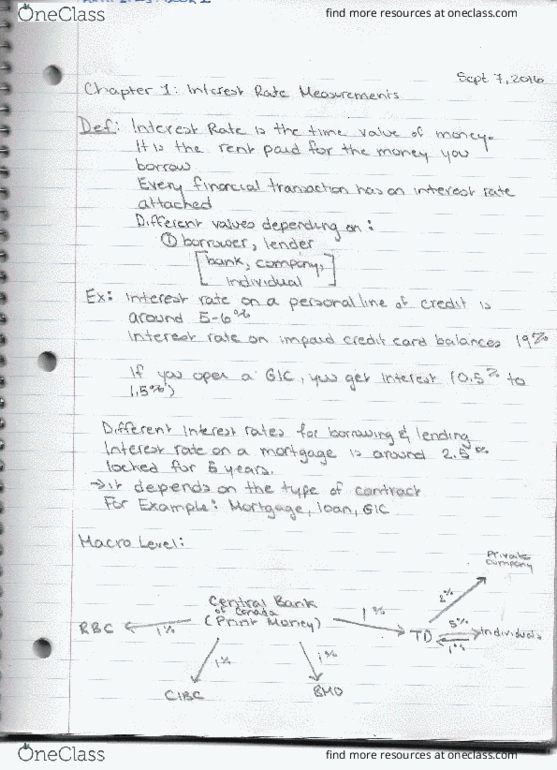 OneClass
find more resources at oneclass.com
Sept 7, 2016
Chapter 1: Interest Rate Measurements
Def: Interest Rate is the time value of money.
It is the rent paid for the money you
borrow
Every financial transaction has an interest rate
attached
Different values depending on:
① borrower, lender
[bank, company,
individual]
Ex: interest rate on a personal line of credit is
around 5-6%
Interest rate on unpaid credit card balances 19%
If you open a GIC, you get interest (0.5% to
1.5%)
Different interest rates for borrowing & lending
Interest rate on a mortgage is around 2.5%
locked for 5 years.
→ it depends on the type of contract
For Example: Mortgage, loan, GIC
Macro Level:
Private
company
Central Bank
of Canada
(Print Money)
RBC
1%
1%
TD
2%
5%
1%
Individuals
1%
1%
CIBC
BMO
OneClass
find more resources at oneclass.com